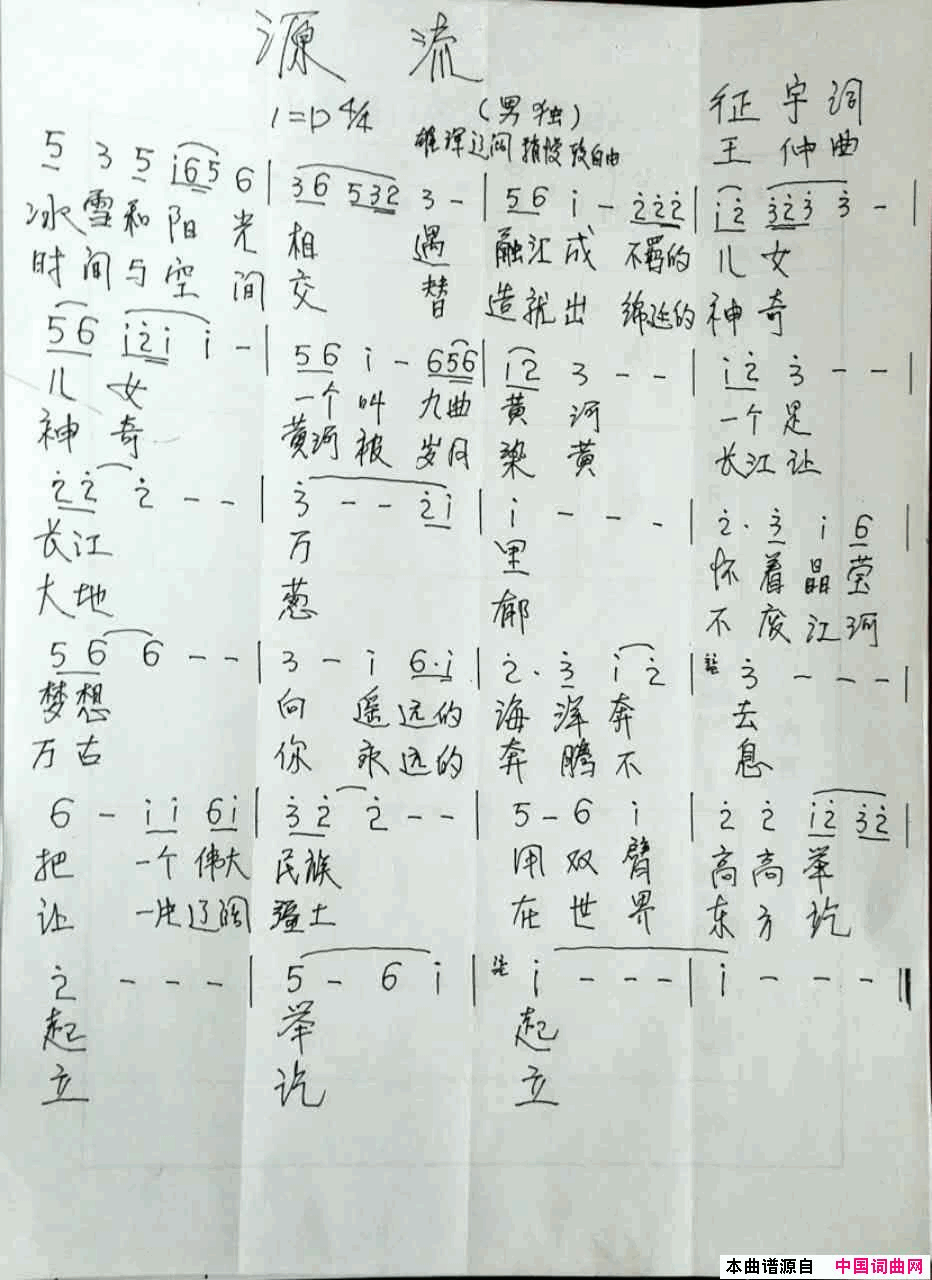 源 流
1=D 4/4 (男独) 征宇词
雄浑辽阔 稍慢 自由 王仲曲
5 3 5 i65 6 | 36 532 3 - | 56 i - 222 | i2 323 3 - |
冰雪和阳光 相 遇 融江成 不羁的 儿女
时间与空间 交 替 造就出 绵延的 神奇
56 i2i i - | 56 i - 656 | i2 3 - - | i2 3 - - |
儿女 一个叫 九曲 黄河 一个是
神奇 黄河被 岁月 染黄 长江让
22 2 - - | 3 - - 2i | i - - - | 2. 3 i 6 |
长江 万 里 怀着晶莹
大地 葱 郁 不废江河
56 6 - - | 3 - i 6.i | 2. 3 i 2 | 3 - - - |
梦想 向 遥远的 海洋奔 去
万古 你 永远的 奔腾不 息
6 - ii 6i | 32 2 - - | 5 - 6 i | 2 2 i2 32 |
把 一个伟大 民族 用双臂 高高举
让 一片辽阔 疆土 在世界 东方屹
2 - - - | 5 - 6 i | i - - - | i - - - ‖
起 举 起
立 屹 立
本曲谱源自 中国词曲网